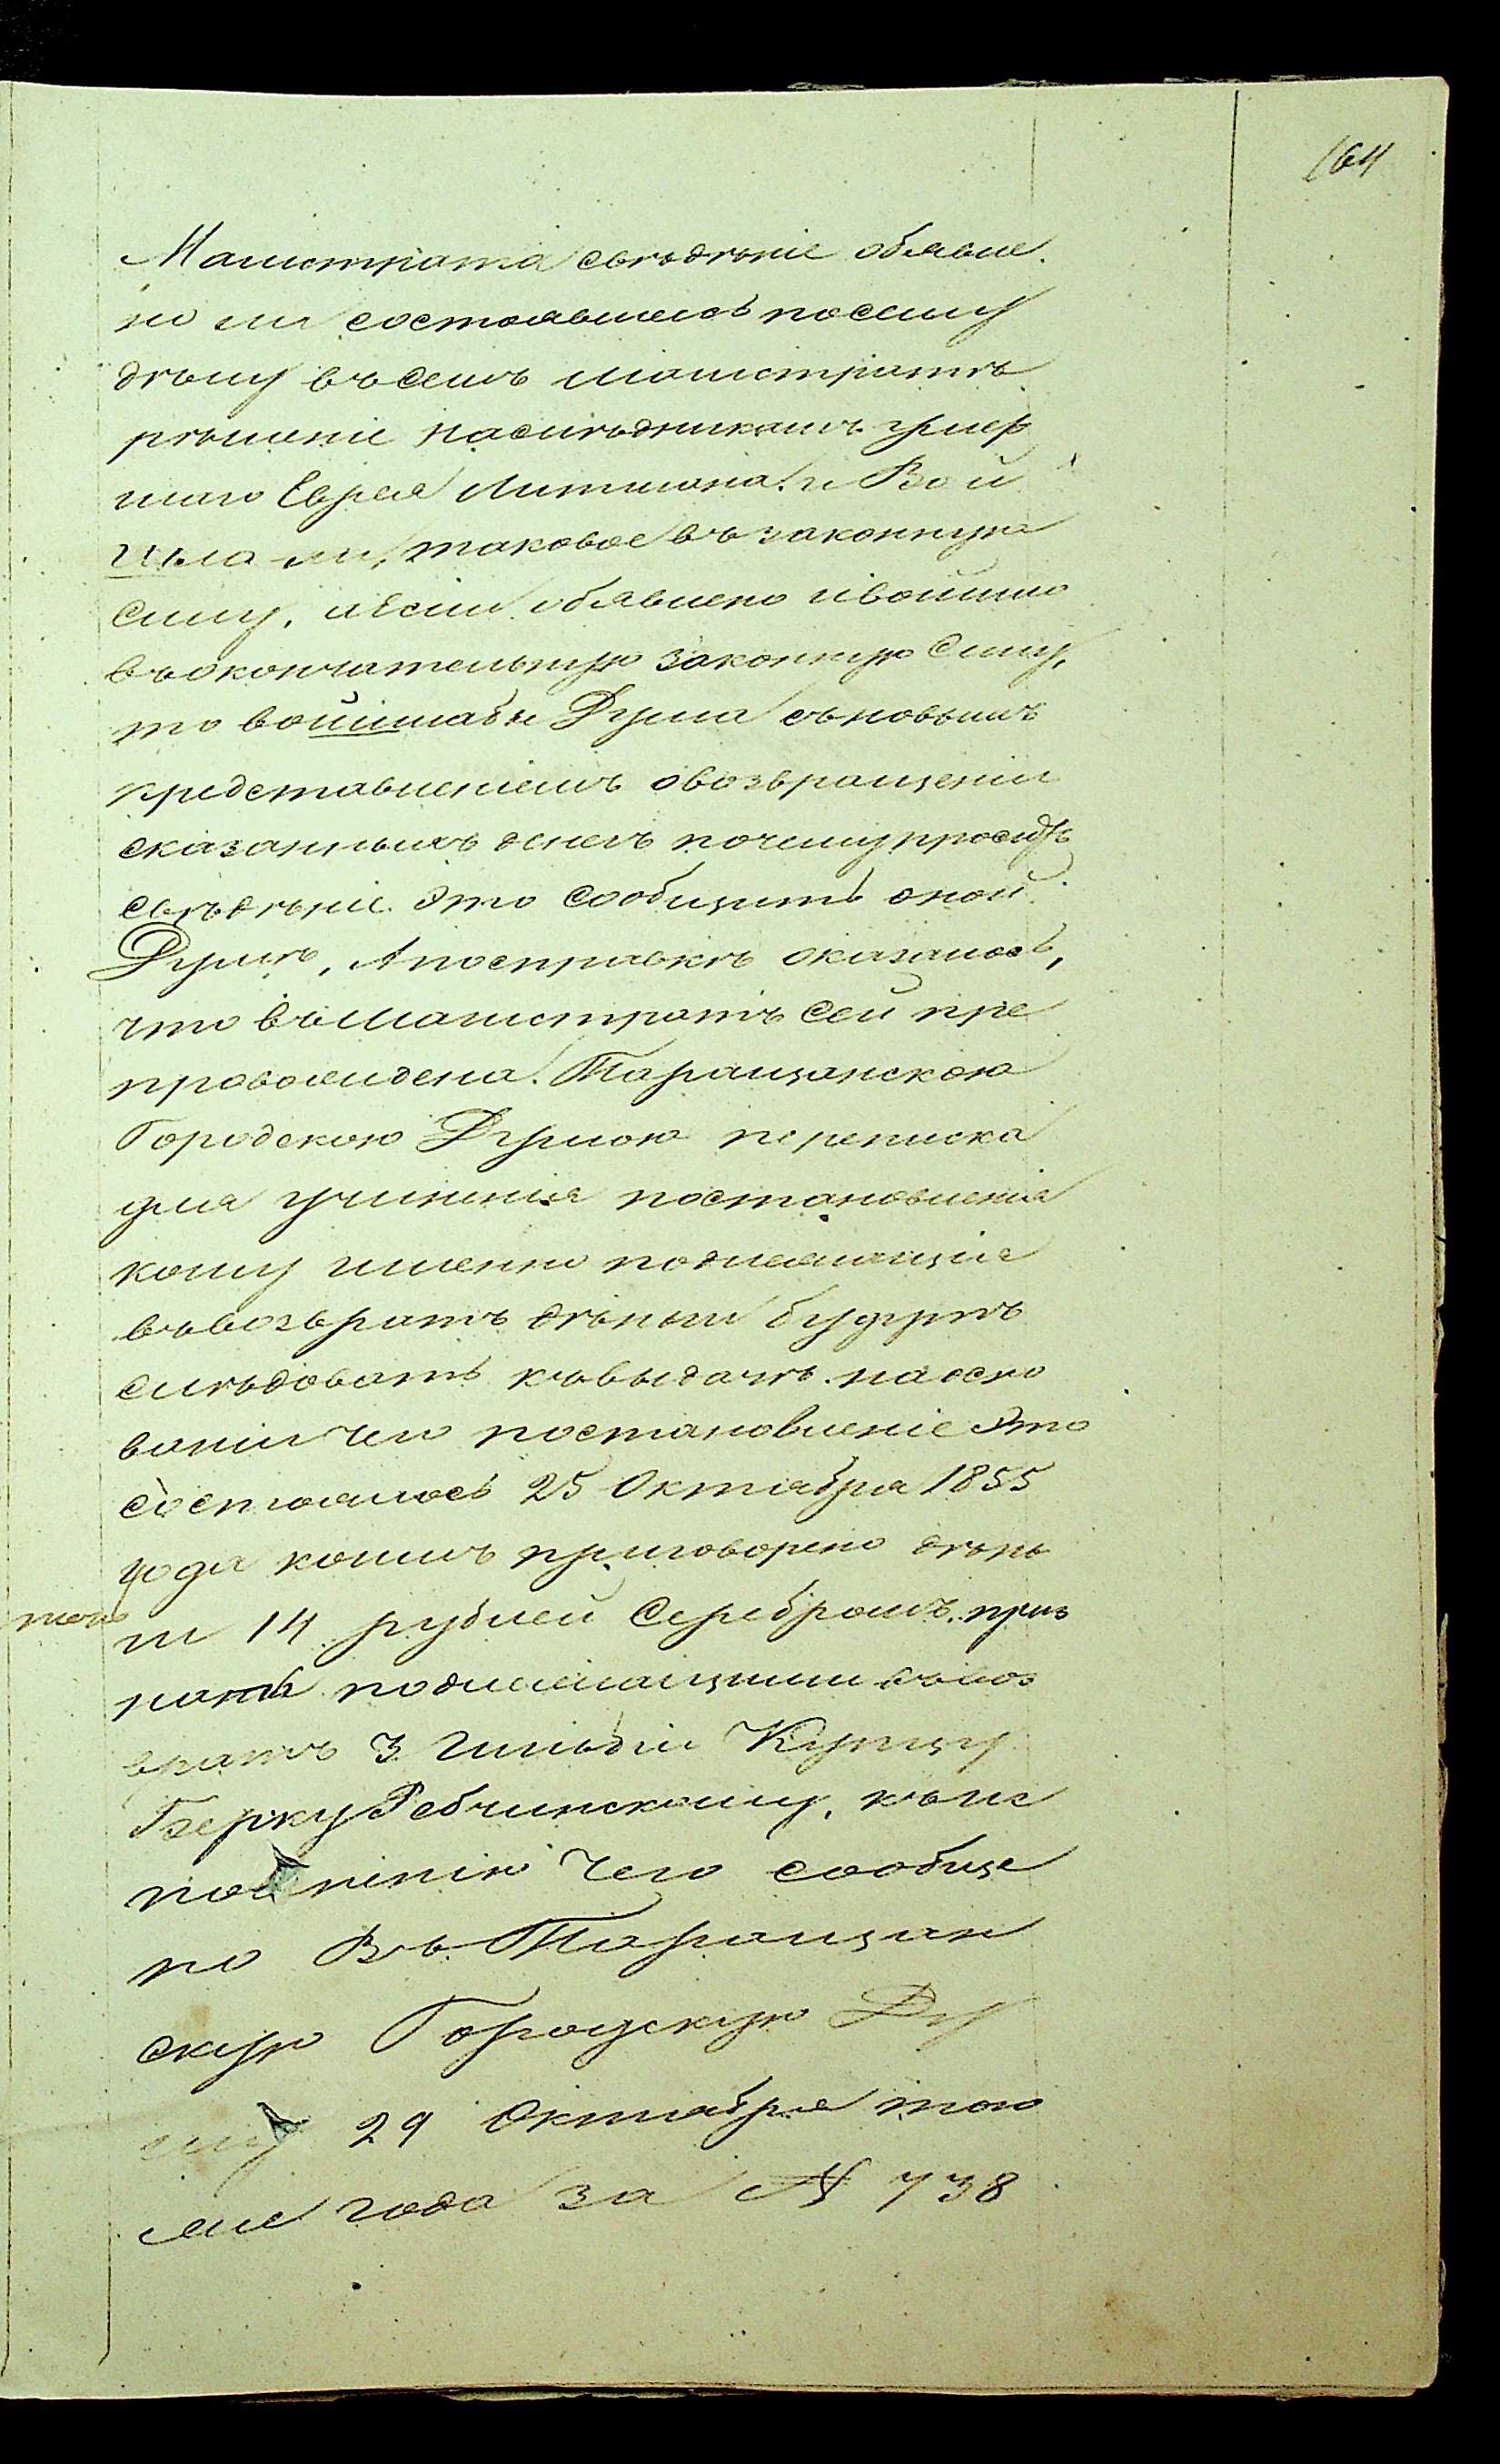 164
Магистрата свѣдѣніе обявле
но ли состоявшеесь посему
дѣлу въ семъ Магистратѣ
рѣшеніе наслѣдникамъ умер
шаго Еврея Литмана и Вой
шла ли таковое въ законную
силу, и если обявлено и войшло
въ окончательную законную Силу,
то войшлабы Дума съ новымъ
представленіемъ о возвращеніи
сказанныхъ денегъ почему проситъ
свѣдѣніе это сообщить оной
Думѣ, А по справкѣ оказалось,
что въ Магистратъ Сей пре
провождена Таращанскою
Городскою Думою переписка
для учиненія постановленія
кому именно подлежащіе
въ возвратъ дѣньги будутъ
слѣдовать къ выдачѣ. на осно
ваніи чего постановленіе Это
состоялось 25 Октября 1855
года коимъ приговорено дѣнь
ги 14 рублей Серебромъ приз
нать подлежащими въ воз
вратъ 3 Гильдіи Купцу
Берку Ребчинскому, къ ис
полненію чего сообще
но Въ Таращан
скую Городскую Ду
му 29 Октября того
же года за № 738